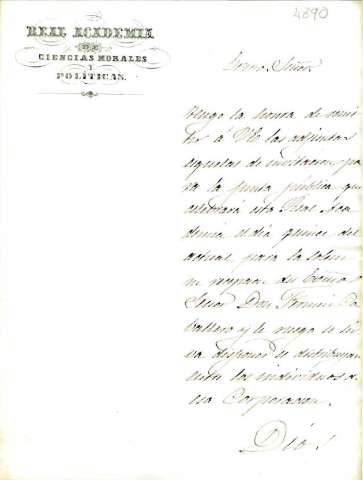 4890
REAL ACADEMIA
DE
CIENCIAS MORALES
Y
POLÍTICAS.
Excmo. Señor
Tengo la honra de remi-
tir á V.E. las adjuntas
esquelas de invitacion pa-
ra la junta pública que
celebrará esta Real Aca-
demia el dia quince del
actual para la solem-
ne recepcion del Excmo.
Señor Don Fermin Ca-
ballero y le ruego se sir-
va disponer se distribuyan
entre los individuos de
esa Corporacion.
Dios